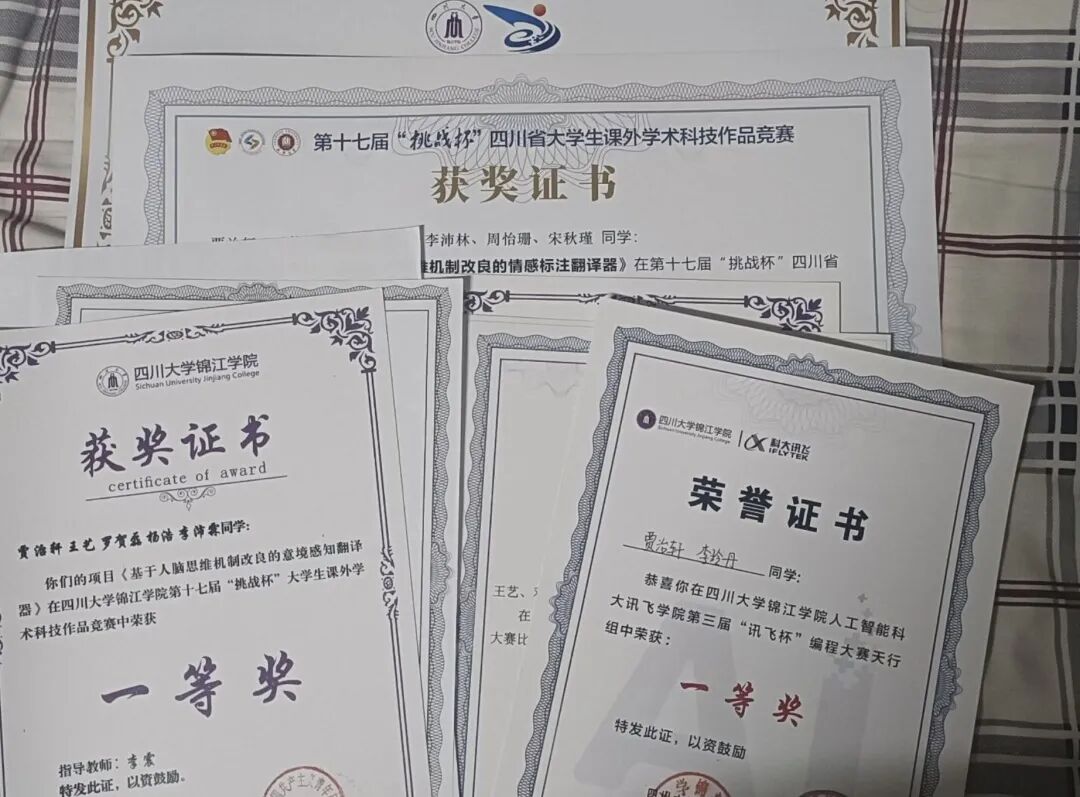 第十七届“挑战杯”四川省大学生课外学术科技作品竞赛
获奖证书
李沛林、周怡珊、宋秋瑾 同学：
机制改良的情感标注翻译器》在第十七届“挑战杯”四川省
四川大学锦江学院
Sichuan University Jinjiang College
获奖证书
certificate of award
贾治轩 王艺 罗贺磊 杨浩 李沛霖同学：
你们的项目《基于人脑思维机制改良的意境感知翻译
器》在四川大学锦江学院第十七届“挑战杯”大学生课外学
术科技作品竞赛中荣获
一等奖
指导教师：李霞
特发此证，以资鼓励。
王艺、
在
大赛比
四川大学锦江学院
Sichuan University Jinjiang College
科大讯飞
IFLYTEK
荣誉证书
贾治轩 李玲丹 同学：
恭喜你在四川大学锦江学院人工智能科
大讯飞学院第三届“讯飞杯”编程大赛天行
组中荣获：
一等奖
特发此证，以资鼓励